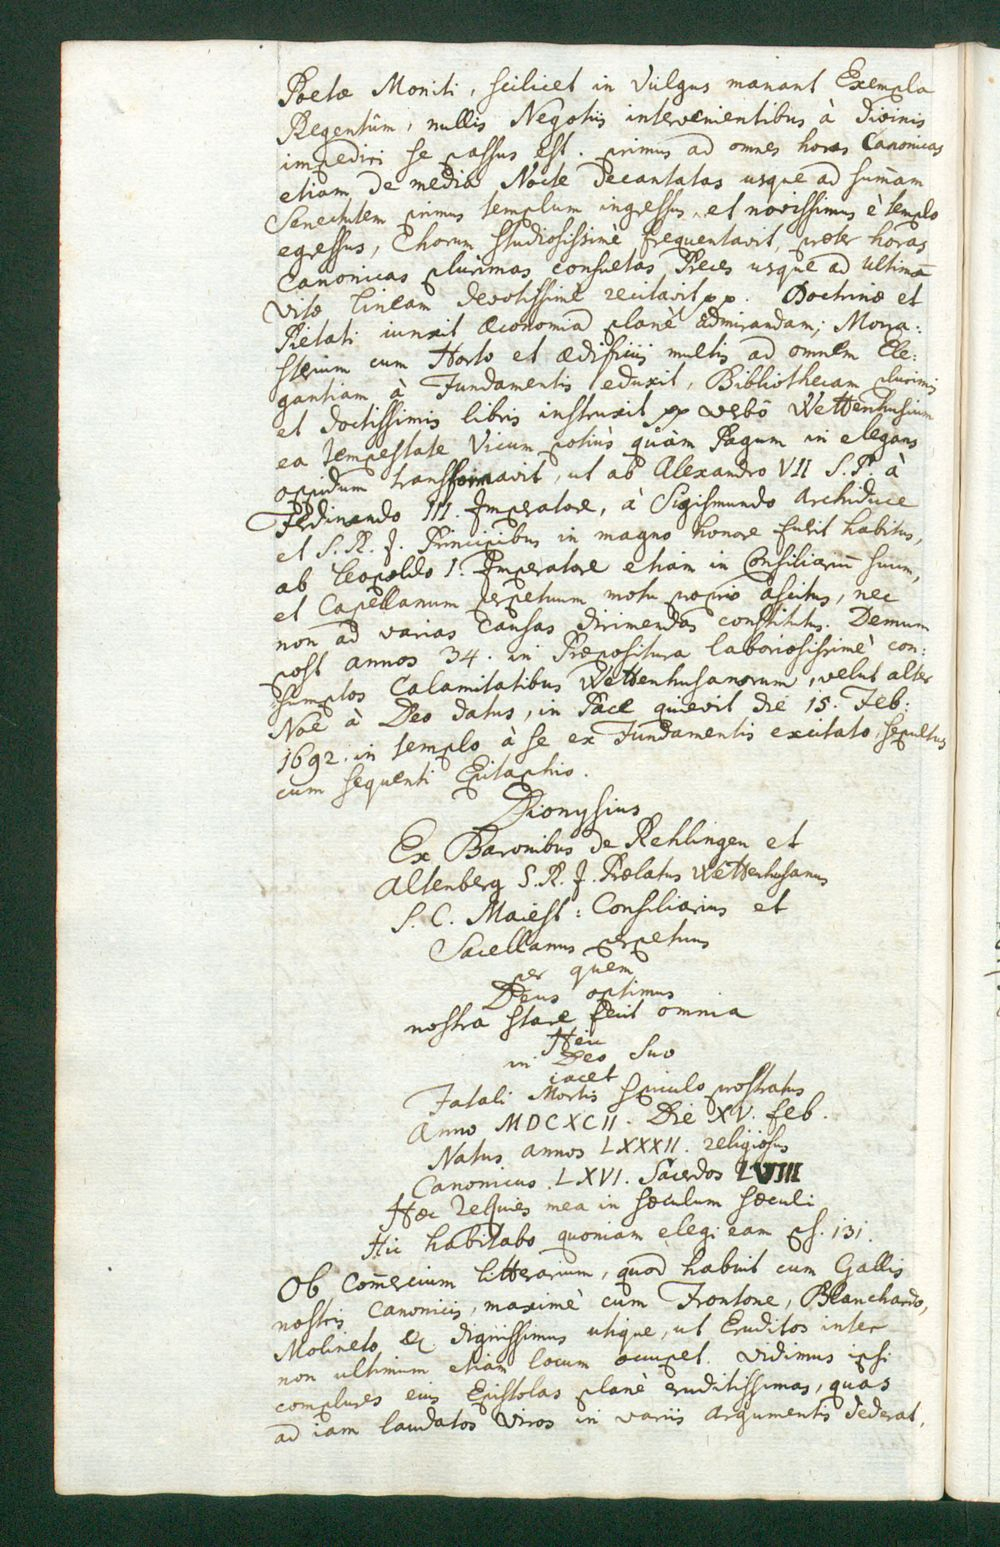 Poetæ Moniti, scilicet in vulgus manant Exempla
Regentûm, nullis Negotiis intervenientibus à divinis
impediri se passus est. primus ad omnes horas Canonicas
etiam de media Nocte decantatas usque ad sum̄am
Senectutem primus templum ingressus, et novissimus è templo
egressus, Chorum studiosissimè frequentavit, præter horas
Canonicas plurimas consuetas Preces usque ad ultimā
vitæ lineam devotissimè recitavit pp. Doctrinæ et
Pietati iunxit œconomiā planè admirandam; Mona:
sterium cum Horto et ædificiis multis ad omnem Ele:
gantiam à Fundamentis eduxit, Bibliothecam plurimis
et doctissimis libris instruxit pp verbō Wettenhusium
ea tempestate Vicum potiùs quàm Pagum in elegans
oppidum transformavit, ut ab Alexandro VII S.P. à
Ferdinando III. Imperatore, à Sigismundo Archiduce
et S. R. J. Principibus in magno honore fuerit habitus,
ab Leopoldo I. Imperatore etiam in Consiliariū suum,
et Capellanum perpetuum motu proprio ascitus, nec
non ad varias causas dirimendas constitutus. Demum
post annos 34. in Præpositura laboriosissimè con:
sumptos calamitatibus Wettenhusanorum, velut alter
Noë à Deo datus, in Pace quievit die 15. Feb:
1692. in templo à se ex Fundamentis excitato sepultus
cum sequenti Epitaphio.
Dionysius
Ex Baronibus de Rehlingen et
Altenberg S. R. J. Prælatus Wettenhusanus
S. C. Maiest: Consiliarius et
Sacellanus perpetuus
per quem
Deus optimus
nostra stare fecit omnia
Heu
in Deo suo
iacet
Fatali Mortis spiculo prostratus
Anno MDCXCII. Die XV. feb.
Natus annos LXXXII. religiosus
Canonicus. LXVI. Sacerdos LVIII
Hæc requies mea in sæculum sæculi
Hic habitabo quoniam elegi eam ps. 131.
Ob com̄ercium litterarium, quod habuit cum Gallis
nostris Canonicis, maximè cum Frontone, Blanchardo,
Molineto &c dignissimus utique, ut Eruditos inter
non ultimum etiam locum occupet. vidimus ipsi
complures eius Epistolas planè eruditissimas, quas
ad iam laudatos viros in variis argumentis dederat,